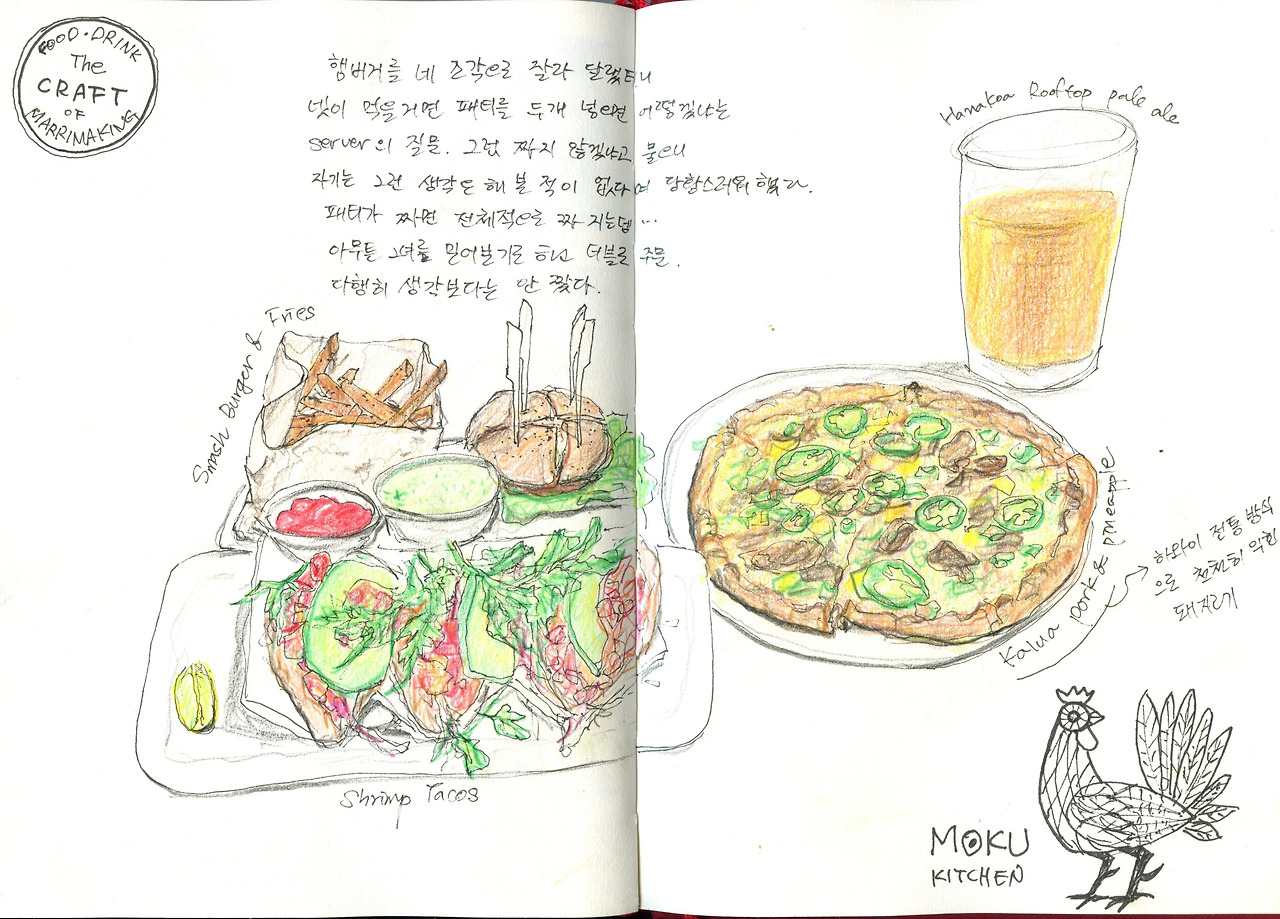 FOOD · DRINK
The
CRAFT
OF
MARRIMAKING
햄버거를 네 조각으로 잘라 달랬더니
넷이 먹을거면 패티를 두개 넣으면 어떻겠냐는
server의 질문. 그럼 짜지 않겠냐고 물으니
자기는 그런 생각은 해 본 적이 없다며 당황스러워 했다.
패티가 짜면 전체적으로 짜 지는뎁...
아무튼 그녀를 믿어보기로 하고 더블로 주문.
다행히 생각보다는 안 짰다.
Hanakoa Rooftop pale ale
Smash Burger & Fries
Kalua pork & pineapple
하와이 전통 방식
으로 천천히 익힌
돼지고기
Shrimp Tacos
MOKU
KITCHEN